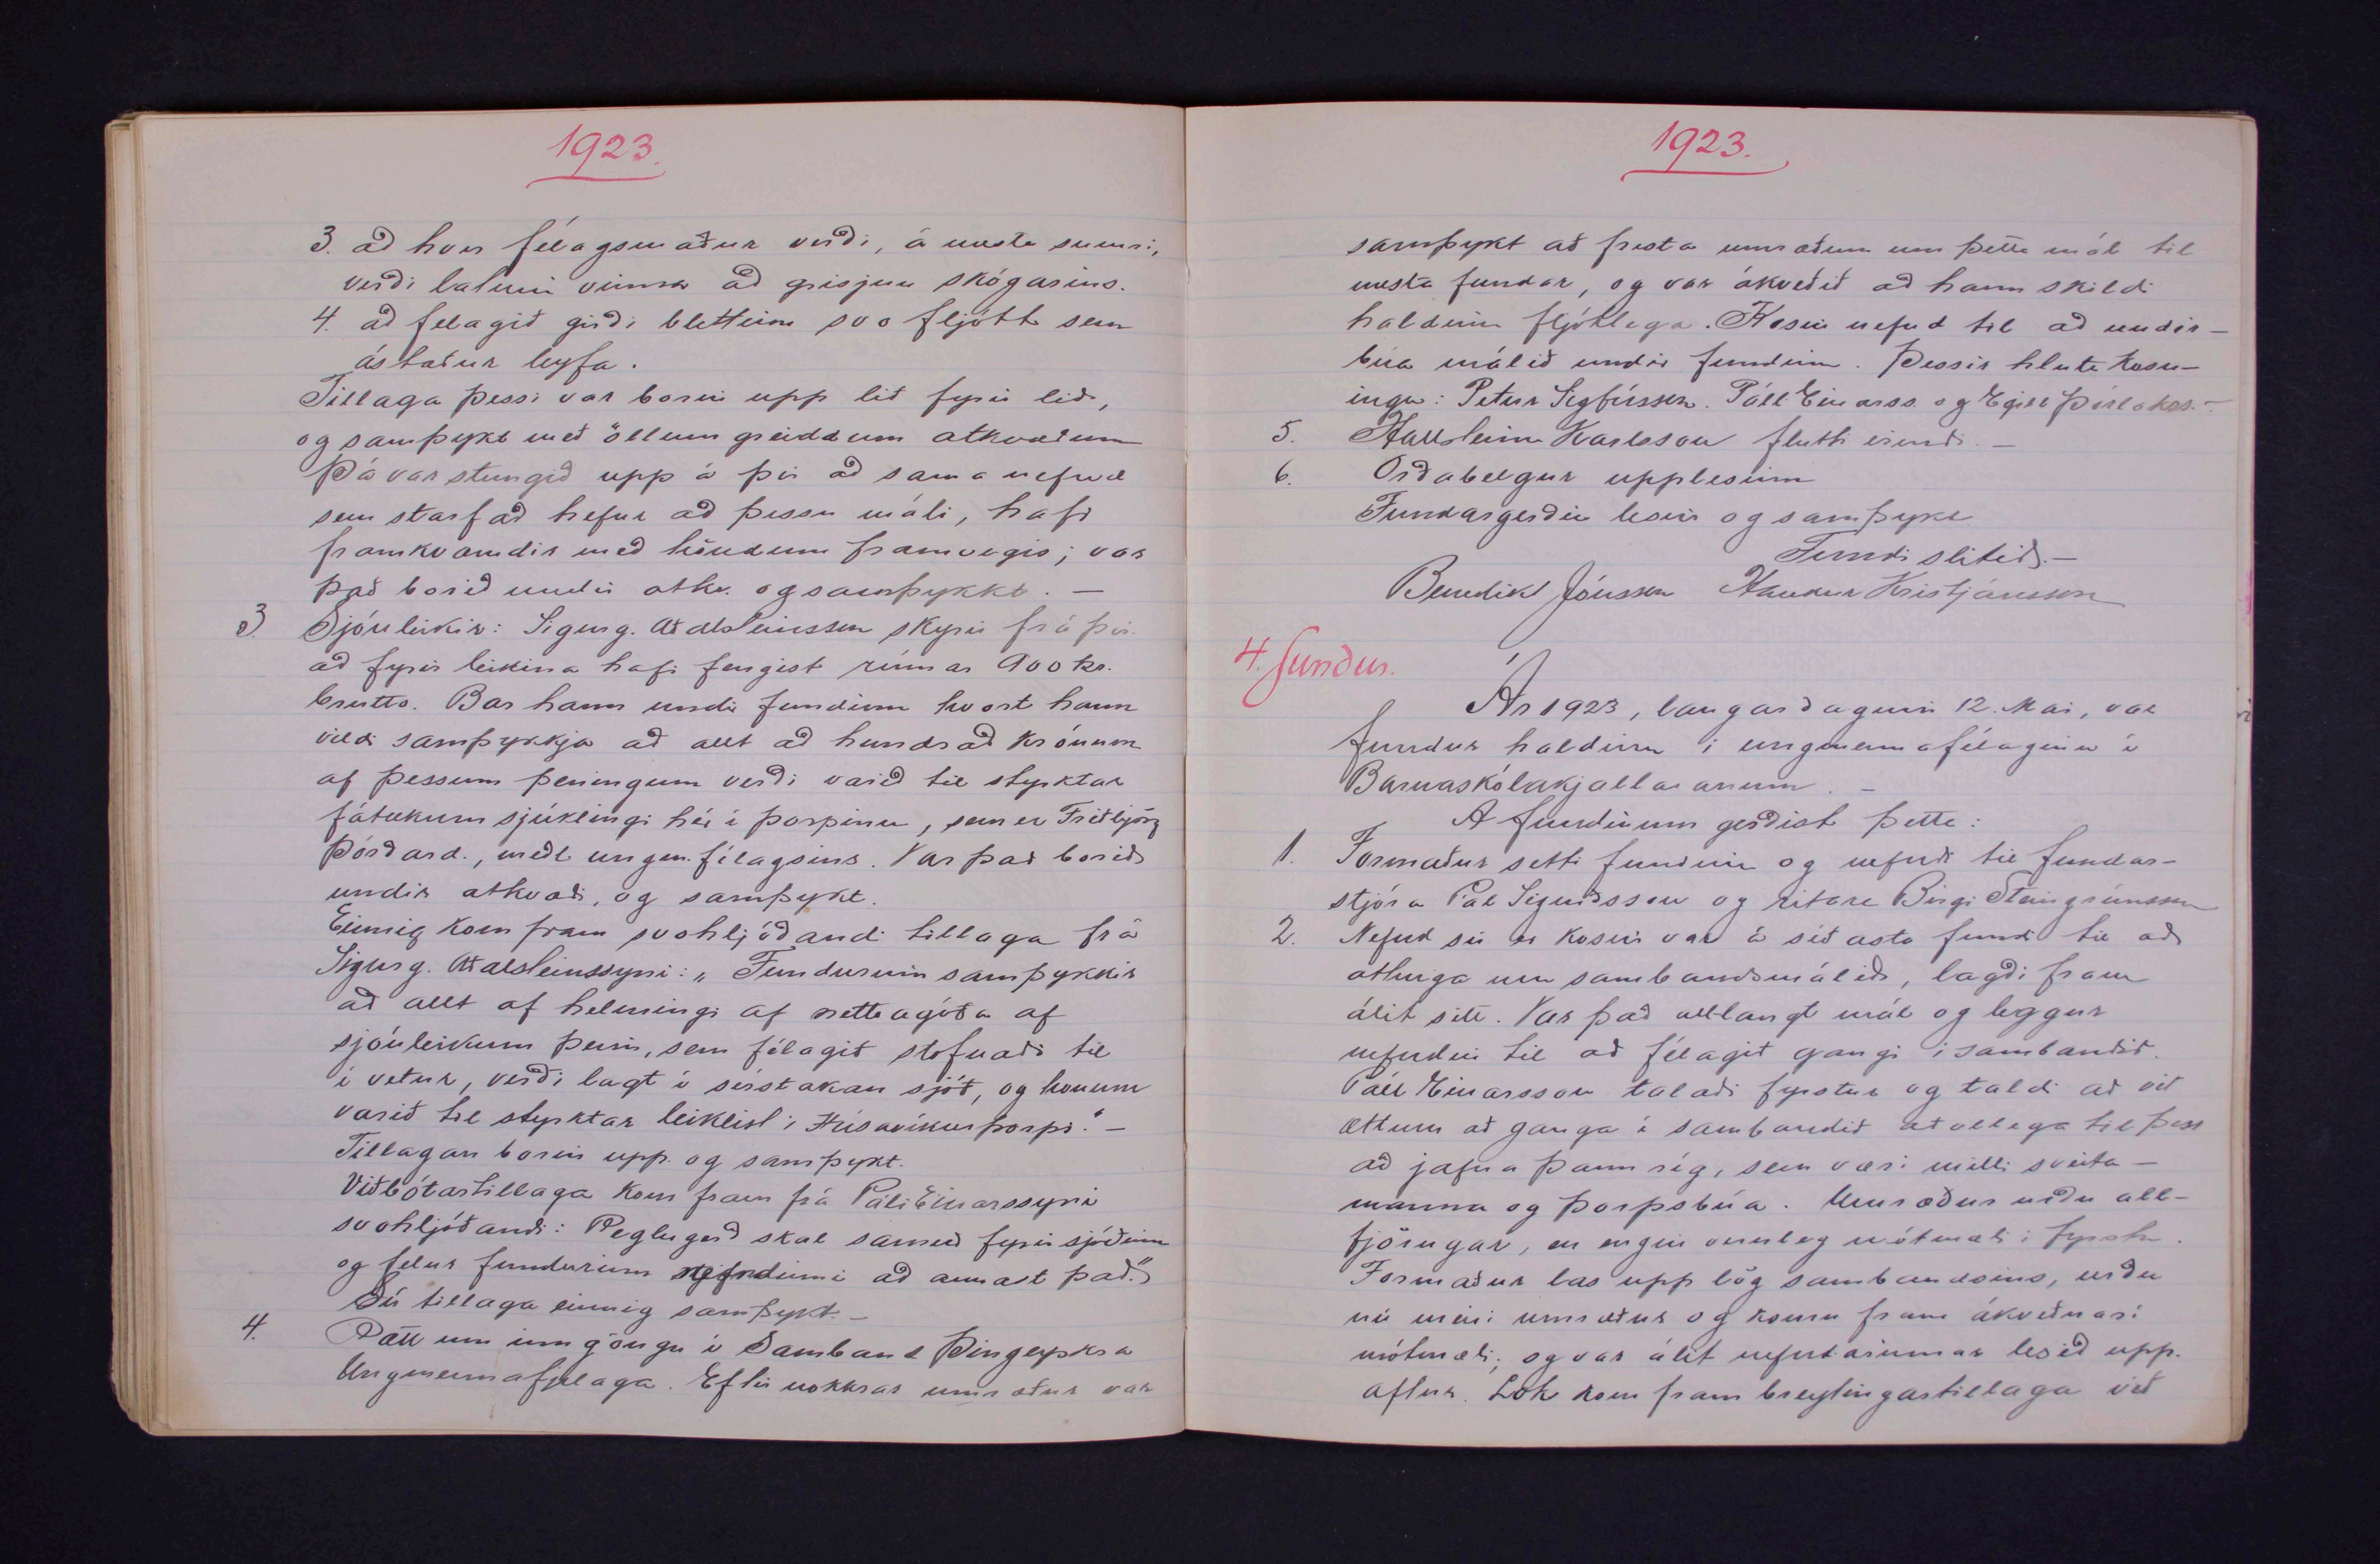 1923.
3. að hver félagsmaður verði, á næsta sumri,
verði látinn vinna að grisjun skógarins.
4. að félagið girði blettinn svo fljótt sem
ástæður leyfa.
Tillaga þessi var borin upp lið fyrir lið,
og samþykt með öllum greiddum atkvæðum
Þá var stungið upp á því að sama nefnd
sem starfað hefur að þessu máli, hafi
framkvæmdir með höndum framvegis; var
það borið undir atkv. og samþykkt. —
3. Sjónleikir: Sigurg. Aðalsteinsson skýrir frá því
að fyrir leikina hafi fengist rúmar 900 kr.
brutto. Bar hann undir fundinn hvort hann
vildi samþykkja að allt að hundrað krónum
af þessum peningum verði varið til styrktar
fátækum sjúklingi hér í þorpinu, sem er Friðbjörg
Þórðard., meðl. ungm. félagsins. Var það borið
undir atkvæði, og samþykt.
Einnig kom fram svohljóðandi tillaga frá
Sigurg. Aðalsteinssyni: „Fundurinn samþykkir
að allt af helmingi af nettoágóða af
sjónleikum þeim, sem félagið stofnaði til
í vetur, verði lagt í sérstakan sjóð, og honum
varið til styrktar leiklist í Húsavíkurþorpi." —
Tillagan borin upp og samþykt.
Viðbótartillaga kom fram frá Páli Einarssyni
svohljóðandi: Reglugerð skal samin fyrir sjóðinn
og felur fundurinn nefndinni að annast það."
Sú tillaga einnig samþykt. —
4. Rætt um inngöngu í Samband Þingeyskra
Ungmennafjelaga. Eftir nokkrar umræður var
1923.
samþykt að fresta umræðum um þetta mál til
næsta fundar, og var ákveðið að hann skildi
haldinn fljótlega. Kosin nefnd til að undir-
búa málið undir fundinn. Þessir hlutu kosn-
ingu: Petur Sigfússon. Páll Einarss. og Egill Þorlákss. —
5. Hallsteinn Karlsson flutti erindi. —
6. Orðabelgur upplesinn
Fundargerðin lesin og samþykt
Fundi slitið. —
Benedikt Jónsson Haukur Kristjánsson
4. fundur.
Ár 1923, laugardaginn 12. Mai, var
fundur haldinn í ungmennafélaginu í
Barnaskólakjallaranum. —
Á fundinum gerðist þetta:
1. Formaður setti fundinn og nefndi til fundar-
stjóra Pál Sigurðsson og ritara Birgi Steingrímsson
2. Nefnd sú er kosin var á síðasta fundi til að
athuga um sambandsmálið, lagði fram
álit sitt. Var það alllangt mál og leggur
nefndin til að félagið gangi í sambandið.
Páll Einarsson talaði fyrstur og taldi að við
ættum að ganga í sambandið aðallega til þess
að jafna þann ríg, sem væri milli sveita-
manna og þorpsbúa. Umræður urðu all-
fjörugar, en engin veruleg mótmæli í fyrstu.
Formaður las upp lög sambandsins, urðu
nú meiri umræður og komu fram ákveðnari
mótmæli; og var álit nefndarinnar lesið upp
aftur. Lok kom fram breytingartillaga við